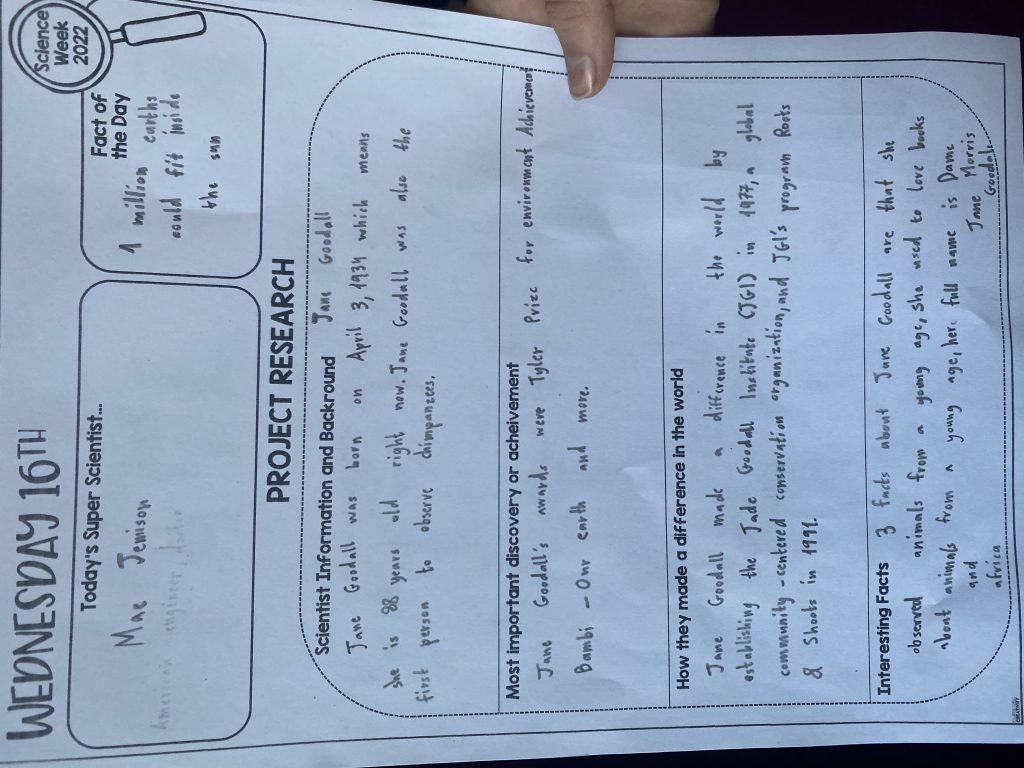 WEDNESDAY 16TH
Science
Week
2022
Today's Super Scientist...
Mae Jemison
American engineer, doctor
Fact of
the Day
1 million earths
could fit inside
the sun
PROJECT RESEARCH
Scientist Information and Backround Jane Goodall
Jane Goodall was born on April 3, 1934 which means
she is 88 years old right now. Jane Goodall was also the
first person to observe chimpanzees.
Most important discovery or acheivement
Jane Goodall's awards were Tyler Prize for environment Achievement
Bambi - Our earth and more.
How they made a difference in the world
Jane Goodall made a difference in the world by
establishing the Jade Goodall Institute (JGI) in 1977, a global
community-centered conservation organization, and JGI's program Roots
& Shoots in 1991.
Interesting Facts 3 facts about Jane Goodall are that she
observed animals from a young age, she used to love books
about animals from a young age, her full name is Dame
and Jane Morris
africa Goodall.